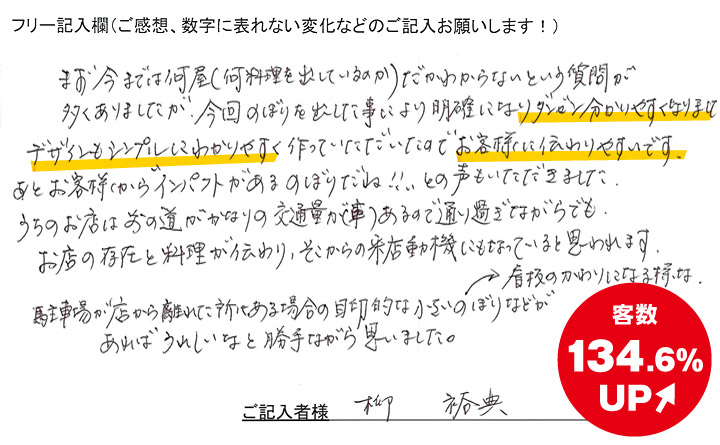 フリー記入欄(ご感想、数字に表れない変化などのご記入お願いします!)
まず今までは何屋(何料理を出しているのか)だかわからないという質問が
多くありましたが、今回のぼりを出した事により明確になりダンゼン分かりやすくなりまして
デザインもシンプルにわかりやすく作っていただいたのでお客様に伝わりやすいです。
あとお客様からインパクトがあるのぼりだね!!!との声もいただきました。
うちのお店は前の道がかなりの交通量が(車)あるので通り過ぎながらでも、
お店の存在と料理が伝わり、そこからの来店動機にもなっていると思われます。
→看板のかわりになる様な。
駐車場が店から離れた所にある場合の目印的な小さいのぼりなどが
あればうれしいなと勝手ながら思いました。
ご記入者様 柳 裕典
客数
134.6%
UP